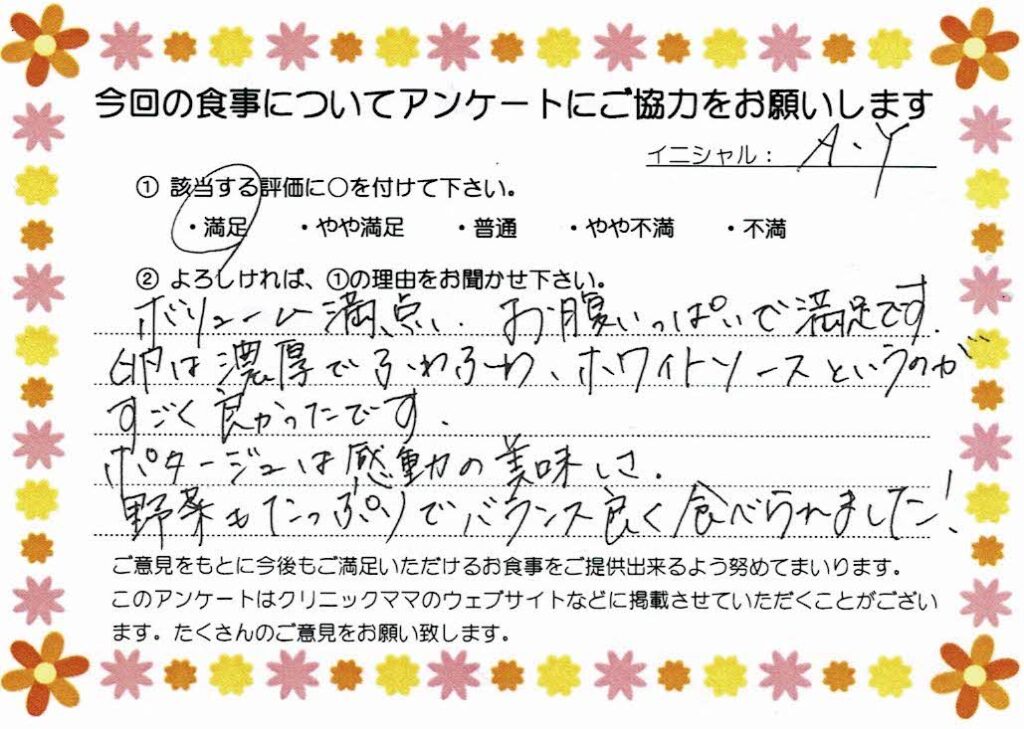 今回の食事についてアンケートにご協力をお願いします
イニシャル： A.Y
① 該当する評価に○を付けて下さい。
・満足 ・やや満足 ・普通 ・やや不満 ・不満
② よろしければ、①の理由をお聞かせ下さい。
ボリューム満点、お腹いっぱいで満足です.
卵は濃厚でふわふわ、ホワイトソースというのが
すごく良かったです.
ポタージュは感動の美味しさ.
野菜もたっぷりでバランス良く食べられました!
ご意見をもとに今後もご満足いただけるお食事をご提供出来るよう努めてまいります。
このアンケートはクリニックママのウェブサイトなどに掲載させていただくことがござい
ます。たくさんのご意見をお願い致します。